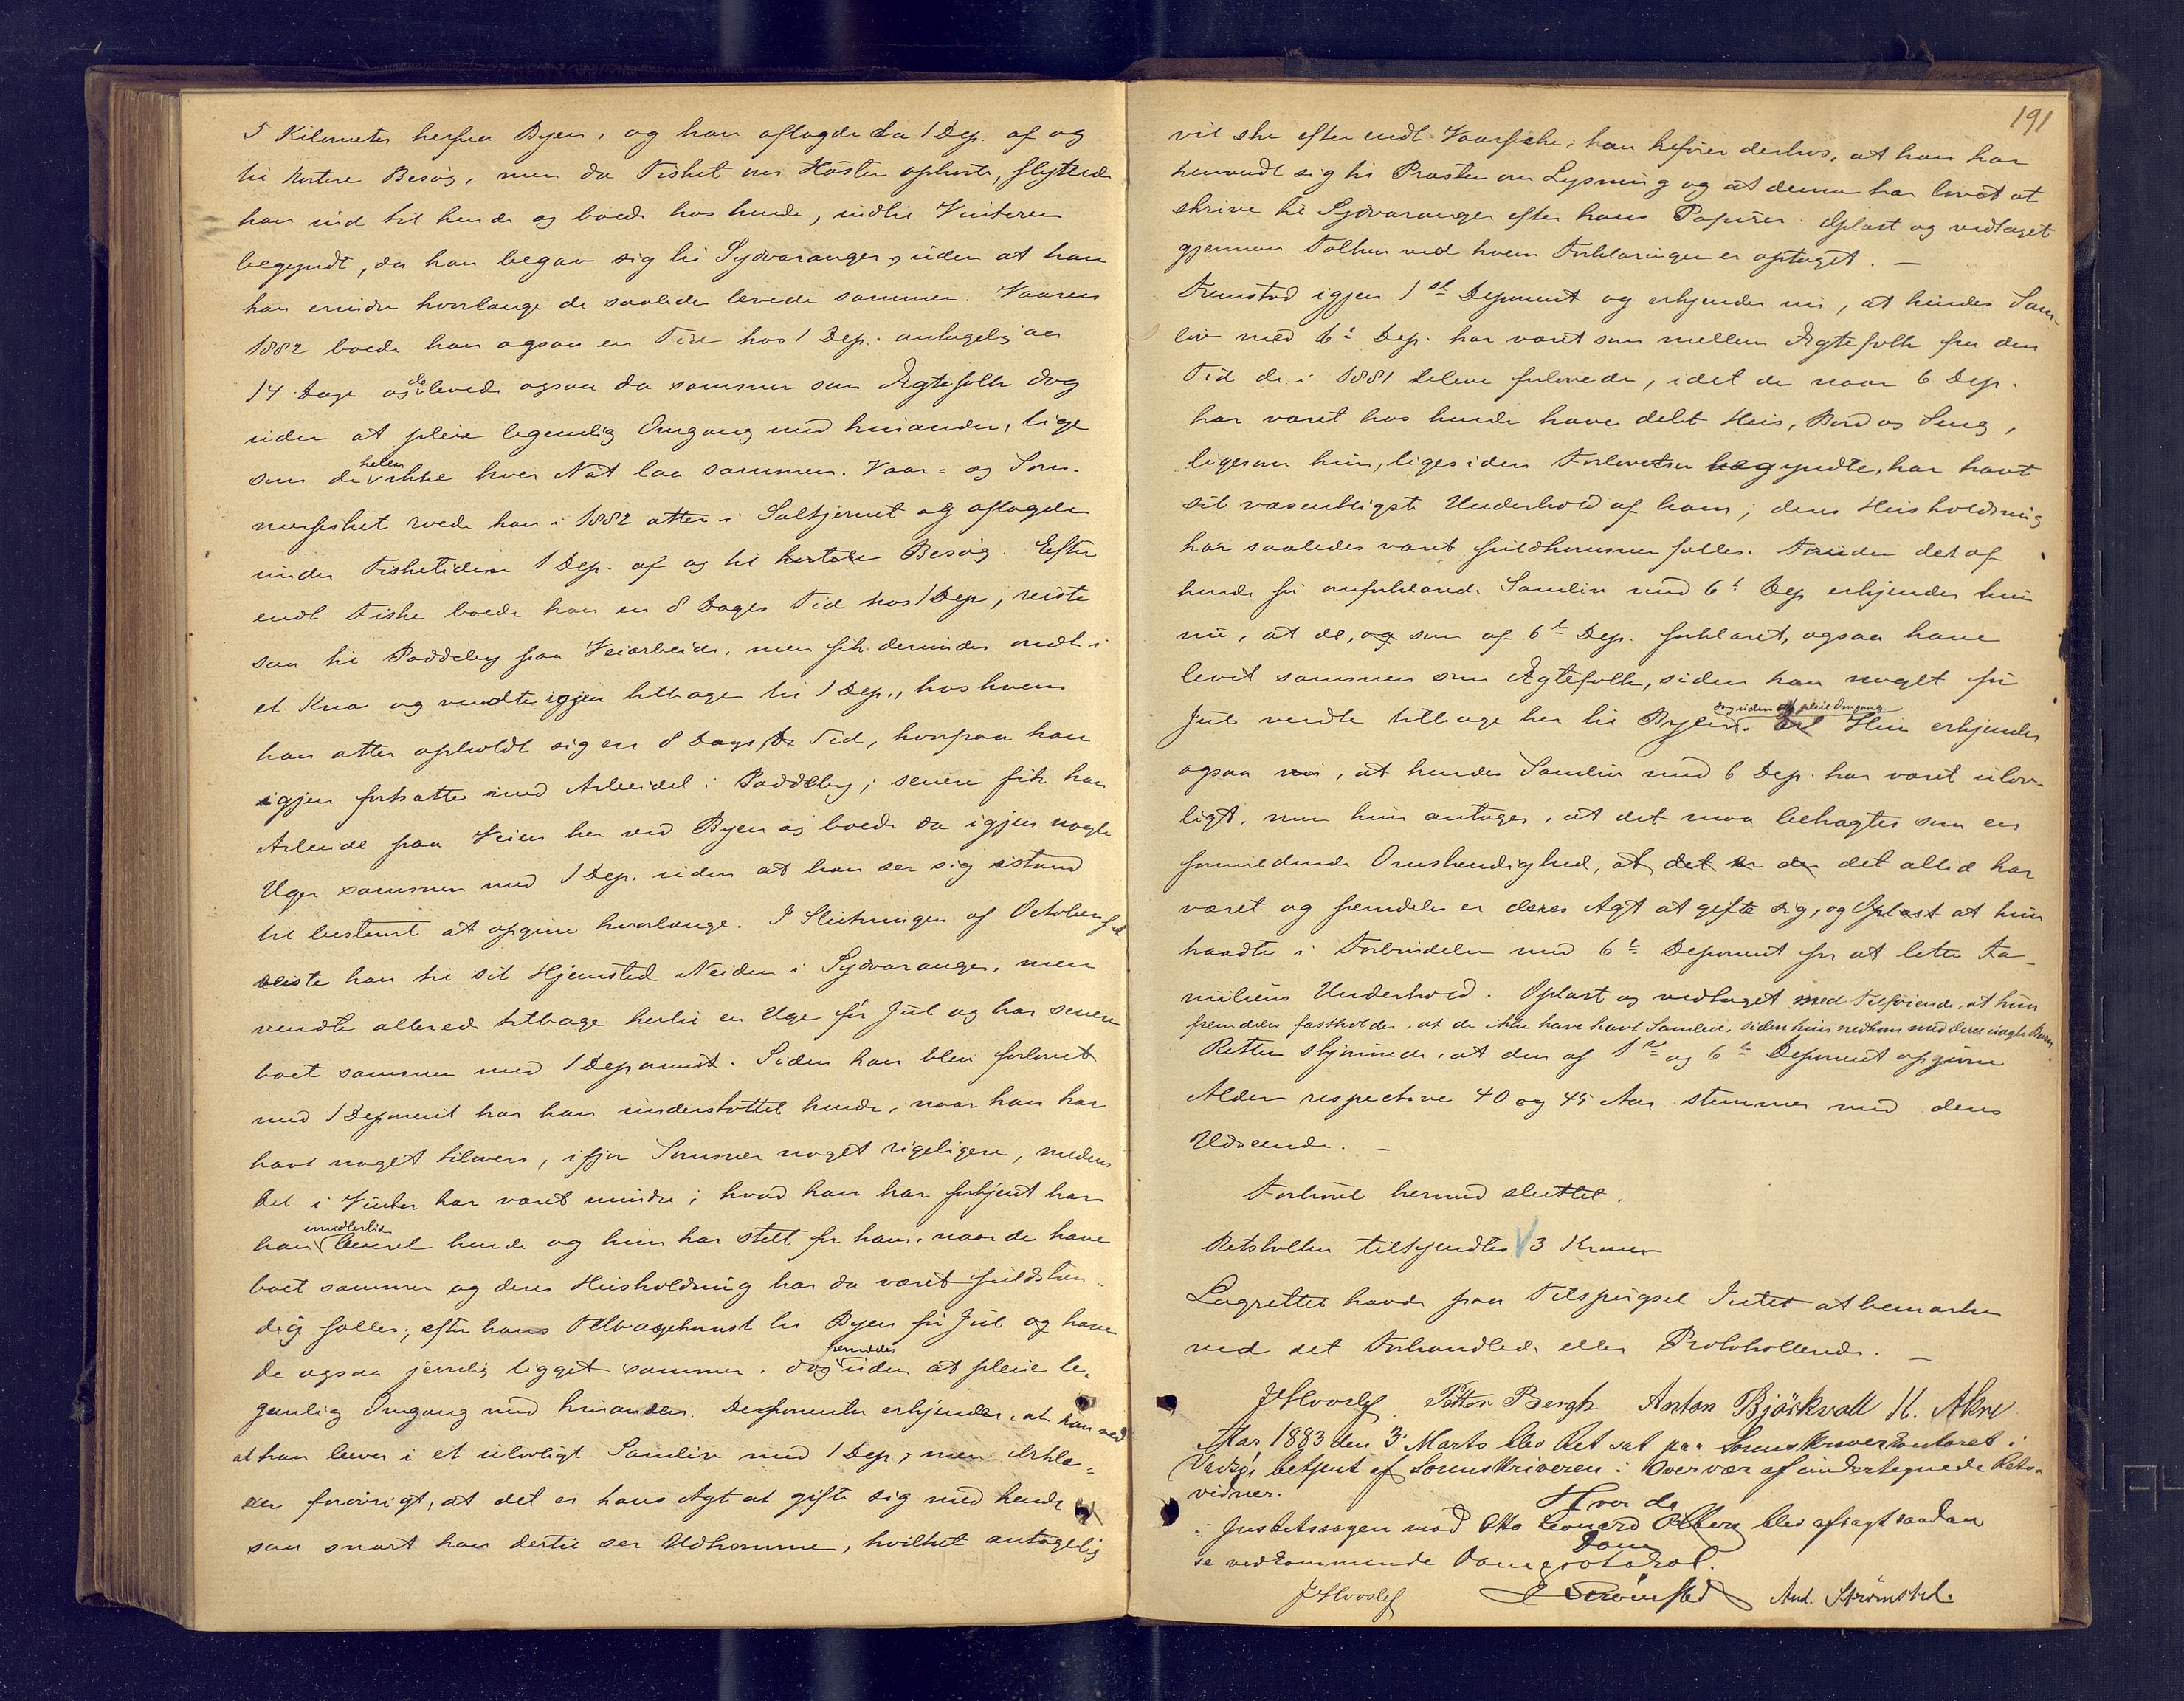 5 Kilometer herfra Byen, og han aflagde da 1 Dep. af og
til kortere Besøg, men da Fisket om Høsten ophørte, flyttede
han ind til hende og boede hos hende, indtil Vinteren
begyndte, da han begav sig til Sydvaranger, uden at han
kan erindre hvorlænge de saaledes levede sammen. Vaaren
1882 boede han ogsaa en Tid hos 1 Dep. antagelig en
14 Dage og de levede ogsaa da sammen som Ægtefolk dog
uden at pleie legemlig Omgang med hinanden, lige
som de heller ikke hver Nat laa sammen. Vaar- og Som-
merfisket roede han i 1882 atter i Saltjernet og aflagde
under Fisketiden 1 Dep. af og til kortere Besøg. Efter
endt Fiske boede han en 8 Dages Tid hos 1 Dep, reiste
saa til Paddeby paa Veiarbeide, men fik derinder ondt i
et Knæ og vendte igjen tilbage til 1 Dep., hos hvem
han atter opholdt sig en 8 Dages Tid, hvorpaa han
igjen fortsatte med Arbeidet i Paddeby; senere fik han
Arbeide paa Veien her ved Byen og boede da igjen nogle
Uger sammen med 1 Dep. uden at han ser sig istand
til bestemt at opgive hvorlænge. I Slutningen af October f. A.
reiste han til sit Hjemsted Neiden i Sydvaranger, men
vendte allerede tilbage hertil en Uge før Jul og har senere
boet sammen med 1 Deponent. Siden han blev forlovet
med 1 Deponent har han understøttet hende, naar han har
havt noget tilovers, ifjor Sommer noget rigeligere, medens
det i Vinter har været mindre; hvad han har fortjent har
han imidlertid leveret hende og hun har stelt for ham, naar de have
boet sammen og deres Husholdning har da været fuldstæn-
dig fælles; efter hans Tilbagekomst til Byen før Jul og have
de ogsaa jevnlig ligget sammen, dog fremdeles uden at pleie le-
gemlig Omgang med hinanden. Deponenten erkjender, at han ved
at han lever i et ulovligt Samliv med 1 Dep, men erklæ-
rer forøvrigt, at det er hans Agt at gifte sig med hende
saa snart han dertil ser Udkomme, hvilket antagelig
191
vil ske efter endt Vaarfiske; han anfører derhos, at han har
henvendt sig til Præsten om Lysning og at denne har lovet at
skrive til Sydvaranger efter hans Papirer. Oplæst og vedtaget
gjennem Tolken ved hvem Forklaringen er optaget. —
Fremstod igjen 1ste Deponent og erkjender nu, at hendes Sam-
liv med 6te Dep. har været som mellem Ægtefolk fra den
Tid de i 1881 bleve forlovede, idet de naar 6 Dep.
har været hos hende have delt Hus, Bord og Seng,
ligesom hun, lige siden Forlovelsen begyndte, har havt
sit væsentligste Underhold af ham; deres Husholdning
har saaledes været fuldkommen fælles. Foruden det af
hende før omforklarede Samliv med 6te Dep. erkjender hun
nu, at de, og som af 6te Dep. forklaret, ogsaa have
levet sammen som Ægtefolk, siden han noget før
Jul vendte tilbage her til Byen dog uden at pleie Omgang. Hun erkjender
ogsaa nu, at hendes Samliv med 6 Dep. har været ulov-
ligt, men hun antager, at det maa betragtes som en
formildende Omstændighed, at det altid har
været og fremdeles er deres Agt at gifte sig, og at hun
traadte i Forbindelse med 6te Deponent for at lette Fa-
miliens Underhold. Oplæst og vedtaget med Tilføiende, at hun
fremdeles fastholder, at de ikke have havt Samleie, siden hun nedkom med deres uægte Barn.
Retten skjønnede, at den af 1ste og 6te Deponent opgivne
Alder respective 40 og 45 Aar stemmer med deres
Udseende. —
Forhøret hermed sluttet.
Retstolken tilkjendtes 3 Kroner
Lagrettet havde paa Tilspørgsel Intet at bemærke
ved det Forhandlede eller Protokollerede. —
Petter Bergh Anton Björkvall
Aar 1883 den 3 Marts blev Ret sat paa Sorenskriverkontoret i
Vadsø, betjent af Sorenskriveren i Overvær af undertegnede Rets-
vidner.
Hvor da
i Justitssagen mod Otto Leonard blev afsagt saadan
Dom
se vedkommende Domsprotokol.
And. Strømsted.